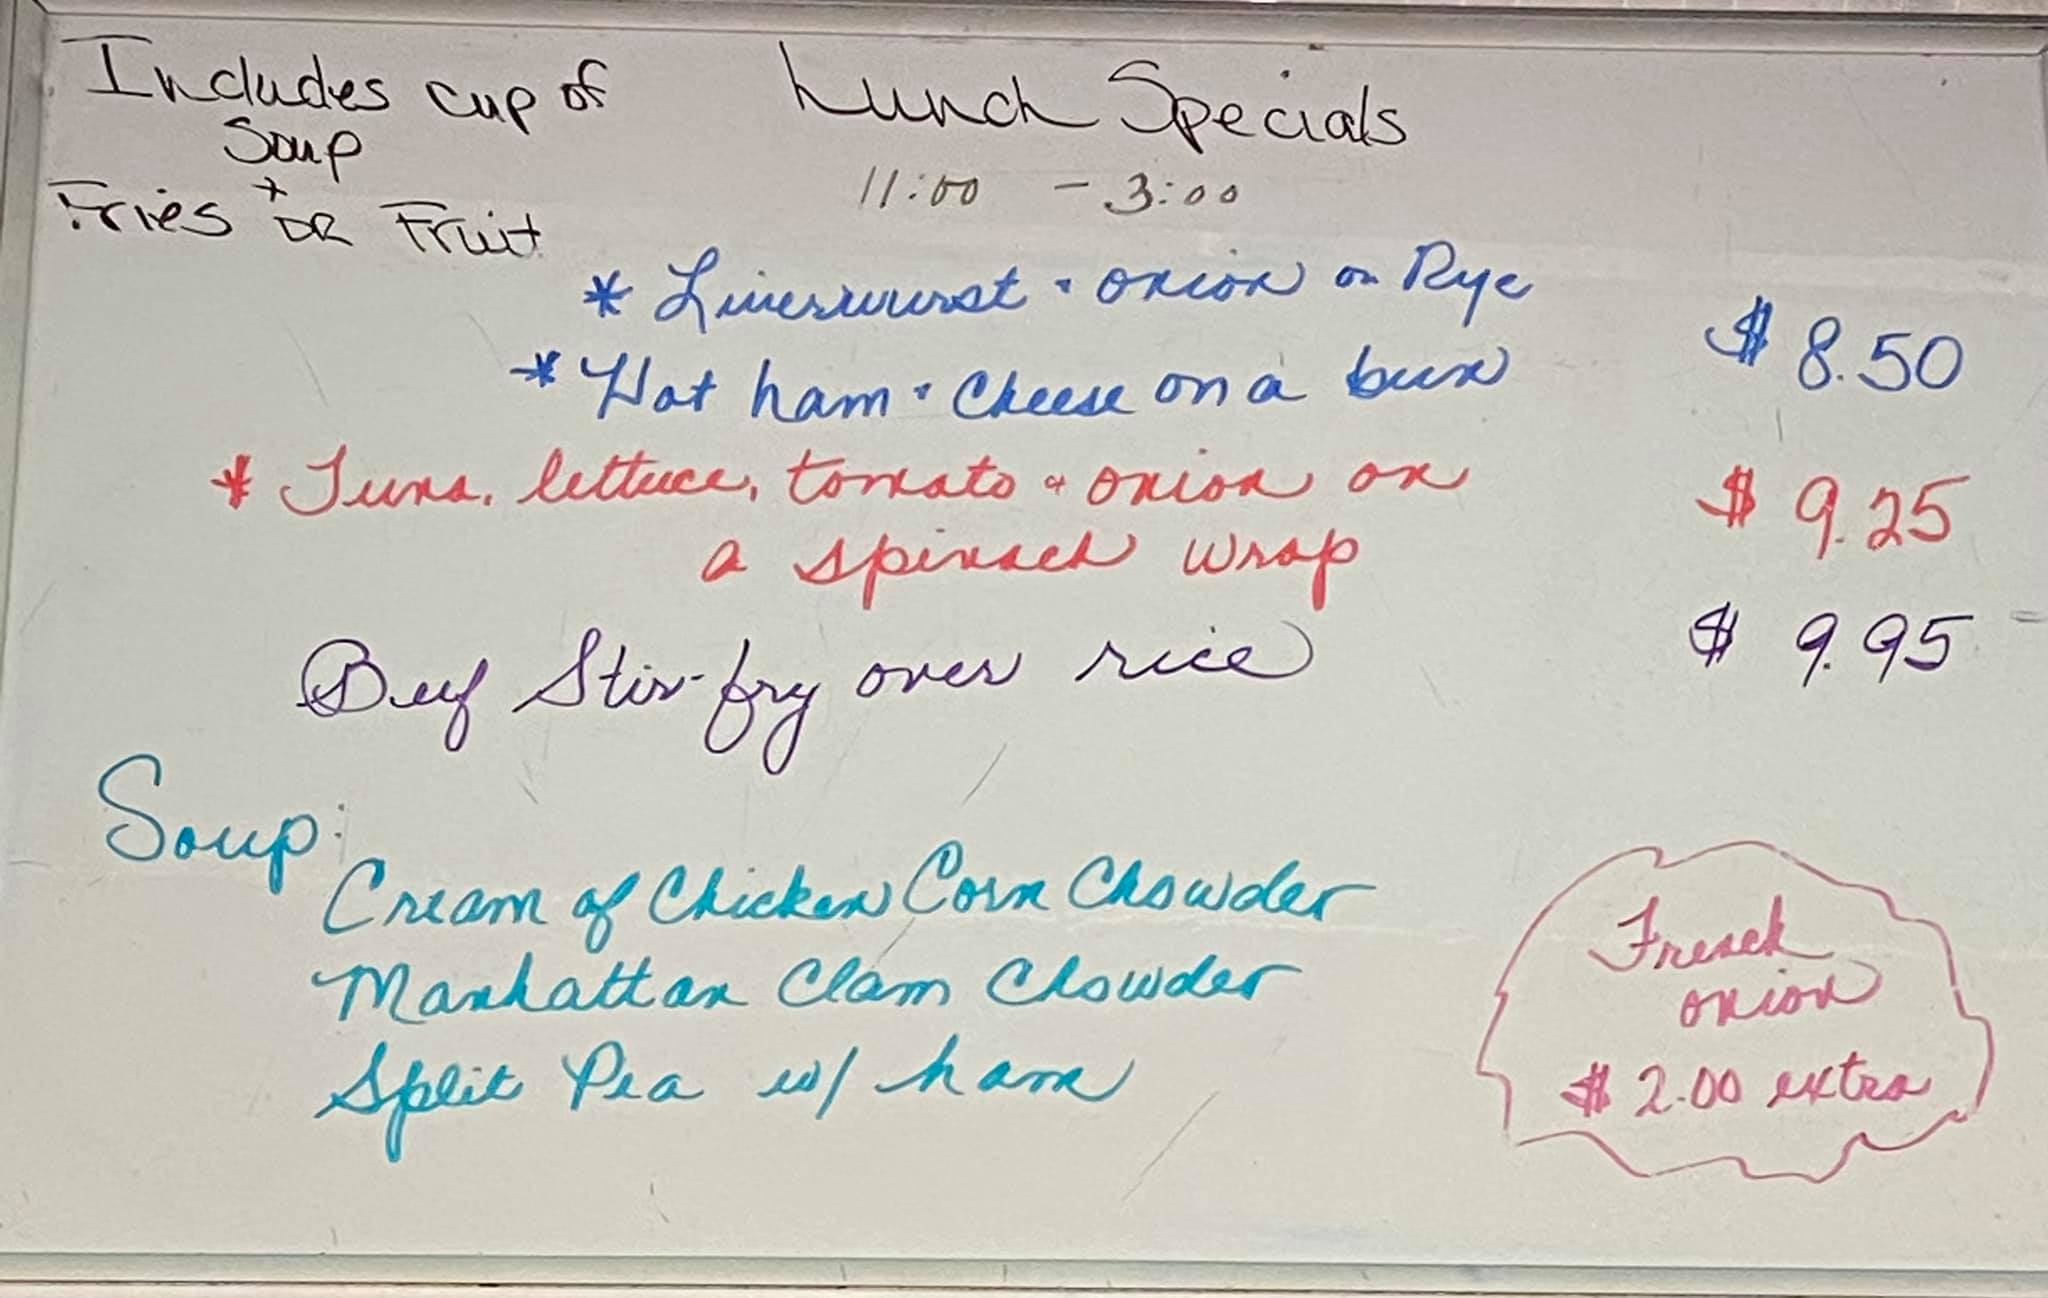 Includes cup of
Soup
+
Fries OR Fruit
Lunch Specials
11:00 - 3:00
* Liverwurst & onion on Rye
* Hot ham & Cheese on a bun
$ 8.50
* Tuna, lettuce, tomato & onion on
a spinach wrap
$ 9.25
Beef Stir-fry over rice
$ 9.95
Soup:
Cream of Chicken Corn Chowder
Manhattan Clam Chowder
Split Pea w/ ham
French
onion
$ 2.00 extra